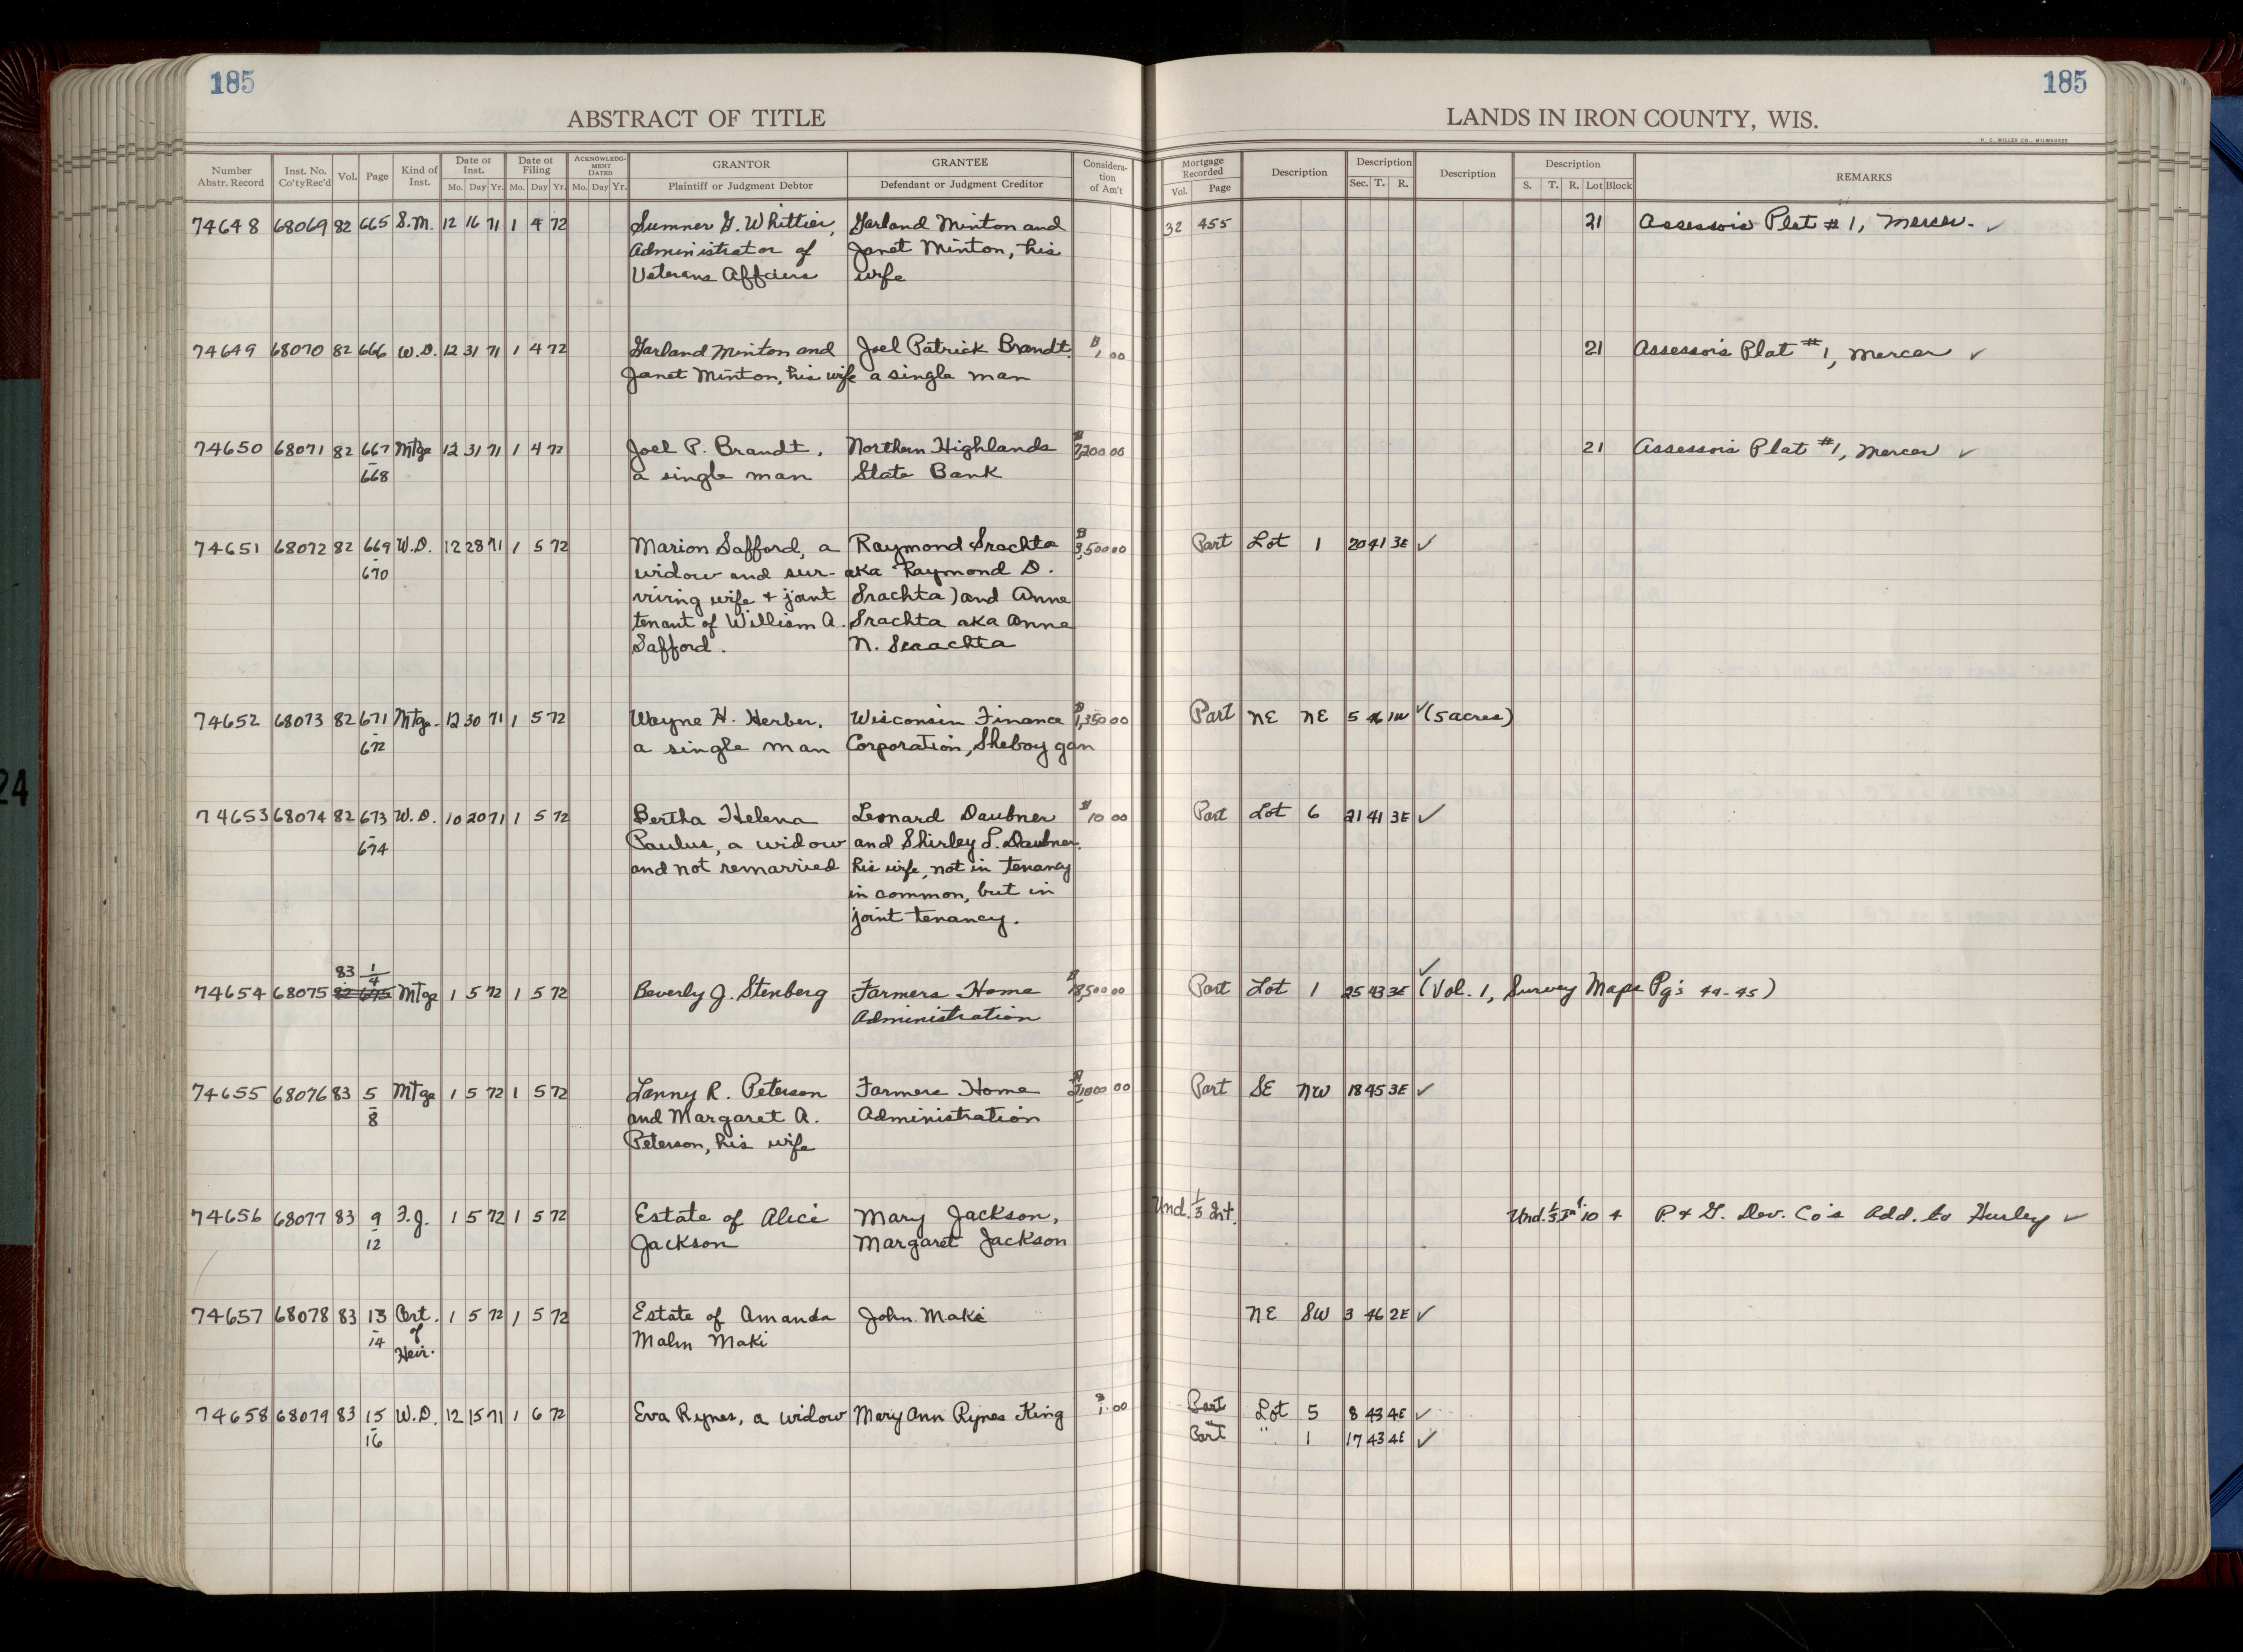 185
185
ABSTRACT OF TITLE
LANDS IN IRON COUNTY, WIS.
H. C. MILLER CO., MILWAUKEE
Number Abstr. Record Inst. No. Co'ty Rec'd Vol. Page Kind of Inst. Date of Inst. Mo. Day Yr. Date of Filing Mo. Day Yr. ACKNOWLEDGMENT DATED Mo. Day Yr. GRANTOR Plaintiff or Judgment Debtor GRANTEE Defendant or Judgment Creditor Consideration of Am't Mortgage Recorded Vol. Page Description Description Sec. T. R. Description Description S. T. R. Lot Block REMARKS
74648 68069 82 665 S.M. 12 16 71 1 4 72 Sumner G. Whittier, Garland Minton and 32 455 21 Assessor's Plat #1, Mercer. ✓
Administrator of Janet Minton, his
Veterans Affairs wife
74649 68070 82 666 W.D. 12 31 71 1 4 72 Garland Minton and Joel Patrick Brandt, $1.00 21 Assessor's Plat #1, Mercer ✓
Janet Minton, his wife a single man
74650 68071 82 667 Mtge 12 31 71 1 4 72 Joel P. Brandt, Northern Highlands $7,200.00 21 Assessor's Plat #1, Mercer ✓
- 668 a single man State Bank
74651 68072 82 669 W.D. 12 28 71 1 5 72 Marion Safford, a Raymond Srachta $3,500.00 Part Lot 1 20 41 3E ✓
- 670 widow and sur- aka Raymond D.
viving wife & joint Srachta) and Anna
tenant of William A. Srachta aka Anna
Safford. N. Serachta
74652 68073 82 671 Mtge. 12 30 71 1 5 72 Wayne H. Herber, Wisconsin Finance $1,350.00 Part NE NE 5 46 1W ✓ (5 acres)
- 672 a single man Corporation, Sheboygan
74653 68074 82 673 W.D. 10 20 71 1 5 72 Bertha Helena Leonard Daubner $10.00 Part Lot 6 21 41 3E ✓
- 674 Paulus, a widow and Shirley L. Daubner,
and not remarried his wife, not in tenancy
in common, but in
joint tenancy.
83 1/4 ✓
74654 68075 82 675 Mtge 1 5 72 1 5 72 Beverly J. Stenberg Farmers Home Part Lot 1 25 43 3E (Vol. 1, Survey Maps Pg's 44-45)
Administration
74655 68076 83 5 Mtge 1 5 72 1 5 72 Lanny R. Peterson Farmers Home Part SE NW 18 45 3E ✓
- 8 and Margaret A. Administration
Peterson, his wife
74656 68077 83 9 F.J. 1 5 72 1 5 72 Estate of Alice Mary Jackson, Und. 1/3 Int. Und. 1/3 Int. 10 4 P. & G. Dev. Co's Add. to Hurley ✓
- 12 Jackson Margaret Jackson
74657 68078 83 13 Cert. 1 5 72 1 5 72 Estate of Amanda John Maki NE SW 3 46 2E ✓
- 14 of Malm Maki
Heir.
74658 68079 83 15 W.D. 12 15 71 1 6 72 Eva Rynes, a widow Mary Ann Rynes King $1.00 Part Lot 5 8 43 4E ✓
- 16 Part " 1 17 43 4E ✓
24